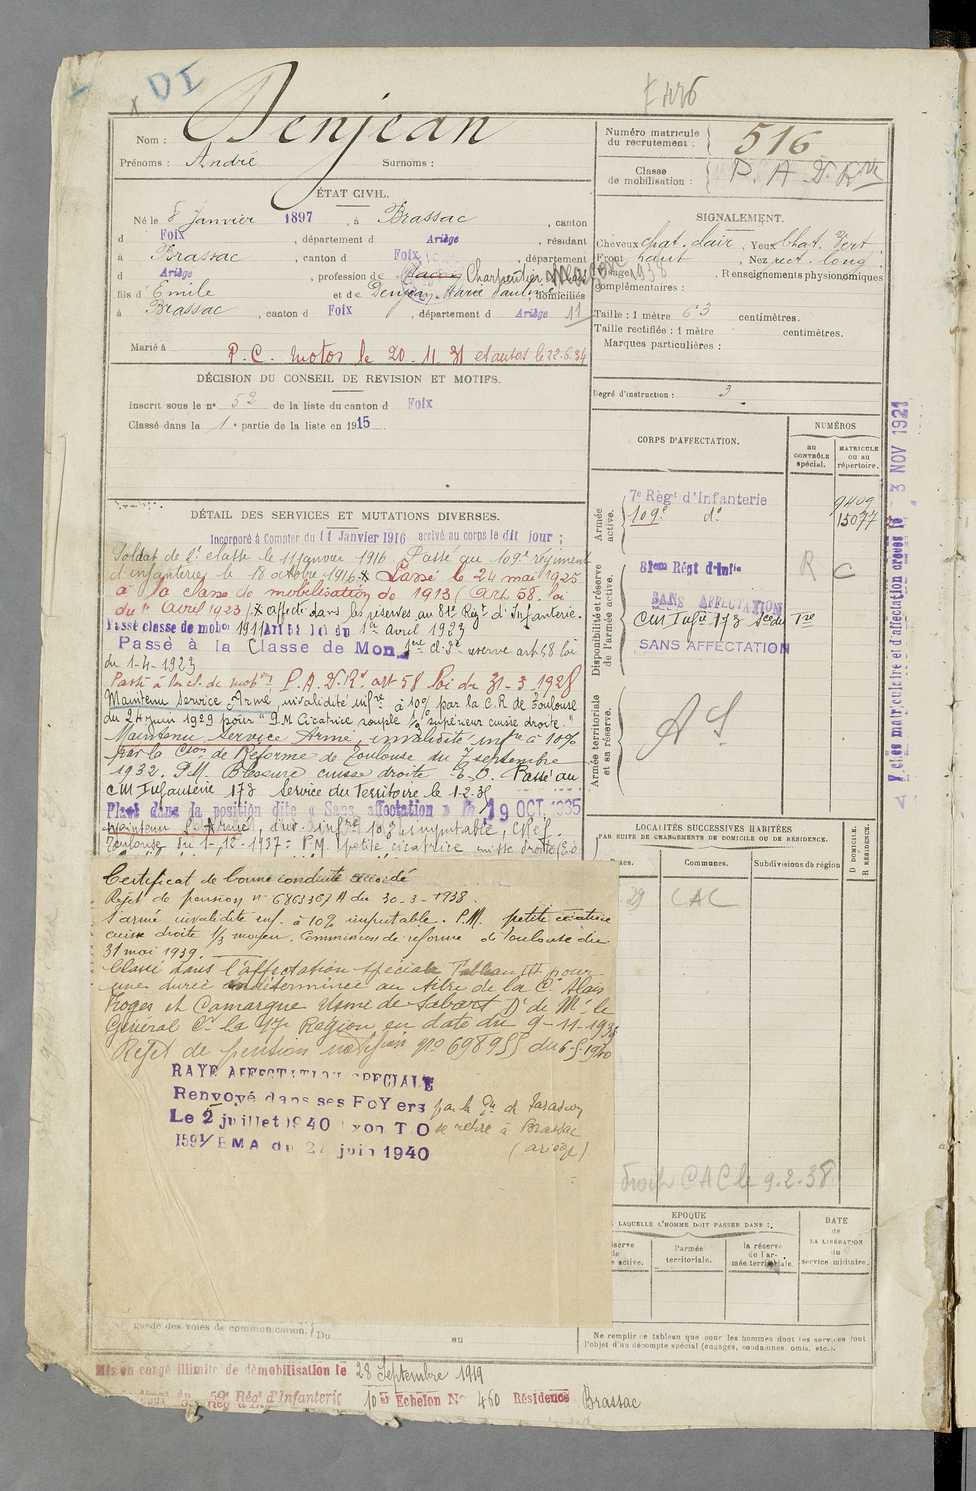 DI
Nom : Denjean
Prénoms : André Surnoms :
Numéro matricule du recrutement : 516
Classe de mobilisation : P. A. D. Rve
ÉTAT CIVIL.
Né le 8 janvier 1897, à Brassac, canton
d Foix, département d Ariège, résidant
à Brassac, canton d Foix, département
d Ariège, profession de Charpentier
fils d' Emile et de Denjean Marie Pauline domiciliés
à Brassac, canton d Foix, département d Ariège
Marié à
P. C. motos le 20.11.31 et autos le 22.6.34
SIGNALEMENT.
Cheveux chat. clair, Yeux chat. vert
Front haut, Nez rect. long
Visage, Renseignements physionomiques
complémentaires :
Taille : 1 mètre 63 centimètres.
Taille rectifiée : 1 mètre centimètres.
Marques particulières :
Degré d'instruction : 3
DÉCISION DU CONSEIL DE REVISION ET MOTIFS.
Inscrit sous le n° 52 de la liste du canton d Foix
Classé dans la 1e partie de la liste en 1915
CORPS D'AFFECTATION.
NUMÉROS
au CONTRÔLE spécial.
MATRICULE ou au répertoire.
Armée active.
7e Règt d'Infanterie
109e do 15077
Disponibilité et réserve de l'armée active.
81eme Régt d'infie R C
SANS AFFECTATION
CM Infie 173
SANS AFFECTATION
Armée territoriale et sa réserve.
AS
DÉTAIL DES SERVICES ET MUTATIONS DIVERSES.
Incorporé à Compter du 11 Janvier 1916 arrivé au corps le dit jour ;
Soldat de 2e classe le 11 janvier 1916 Passé au 109e régiment
d'infanterie le 18 octobre 1916. Passé le 24 mai 1925
à la classe de mobilisation de 1913 (Art. 58. loi
du 1er Avril 1923) affecté dans les réserves au 81e Régt d'Infanterie.
Passé classe de mobon 1911 Art 58 loi du 1er Avril 1923
Passé à la Classe de Mon
du 1-4-1923
Passé à la cl. de mobon P.A.D.Rve art 58 loi du 31-3-1928
Maintenu Service Armé, invalidité infre à 10% par la C.R. de Toulouse
du 24 juin 1929 pour "P.M Cicatrice souple 1/3 supérieur cuisse droite."
Maintenu Service Armé, invalidité infre à 10%
par la Cion de Réforme de Toulouse du 7 septembre
1932. P.M. Blessure cuisse droite. Passé au
CM Infanterie 173 Service du Territoire le 1.2.35
Placé dans la position dite « Sans affectation » le 19 OCT. 1935
Maintenu S. Armé, inv. infre 10% imputable, C Ref.
Toulouse du 1-12-1937 : P.M. petite cicatrice cuisse droite
Certificat de bonne conduite accordé
Rejet de pension n° 686336/A du 30-3-1938.
S. armé invalidité inf. à 10% imputable. P.M. petite cicatrice
cuisse droite 1/3 moyen. Commission de réforme de Toulouse du
31 mai 1939.
Classé dans l'affectation spéciale Tableau III pour
une durée indéterminée au titre de la Cie Alais
Froges et Camargue Usine de Sabart Don de Mr le
Général Ct la 17e Région en date du 9-11-1939
Rejet de pension notifion No 698955 du 6.5.1940
RAYE AFFECTATION SPECIALE
Renvoyé dans ses FoYers par le de Tarascon
Le 2 juillet 1940 se retire à Brassac
EMA du 27 juin 1940 (Ariège)
LOCALITÉS SUCCESSIVES HABITÉES
PAR SUITE DE CHANGEMENTS DE DOMICILE OU DE RÉSIDENCE.
Communes.
Subdivisions de région
D DOMICILE. R RÉSIDENCE.
CAC
CAC le 9.2.38
EPOQUE
LAQUELLE L'HOMME DOIT PASSER DANS :
l'armée territoriale.
la réserve de l'armée territoriale.
DATE de LA LIBÉRATION du service militaire.
Ne remplir ce tableau que pour les hommes dont les services font
l'objet d'un décompte spécial (engagés, condamnés, omis, etc.).
garde des voies de communication. Du au
Mis en congé illimité de démobilisation le 28 Septembre 1919
dépôt du 59e Régt d'Infanterie 10er Echelon No 460 Résidence Brassac
3 NOV 1921